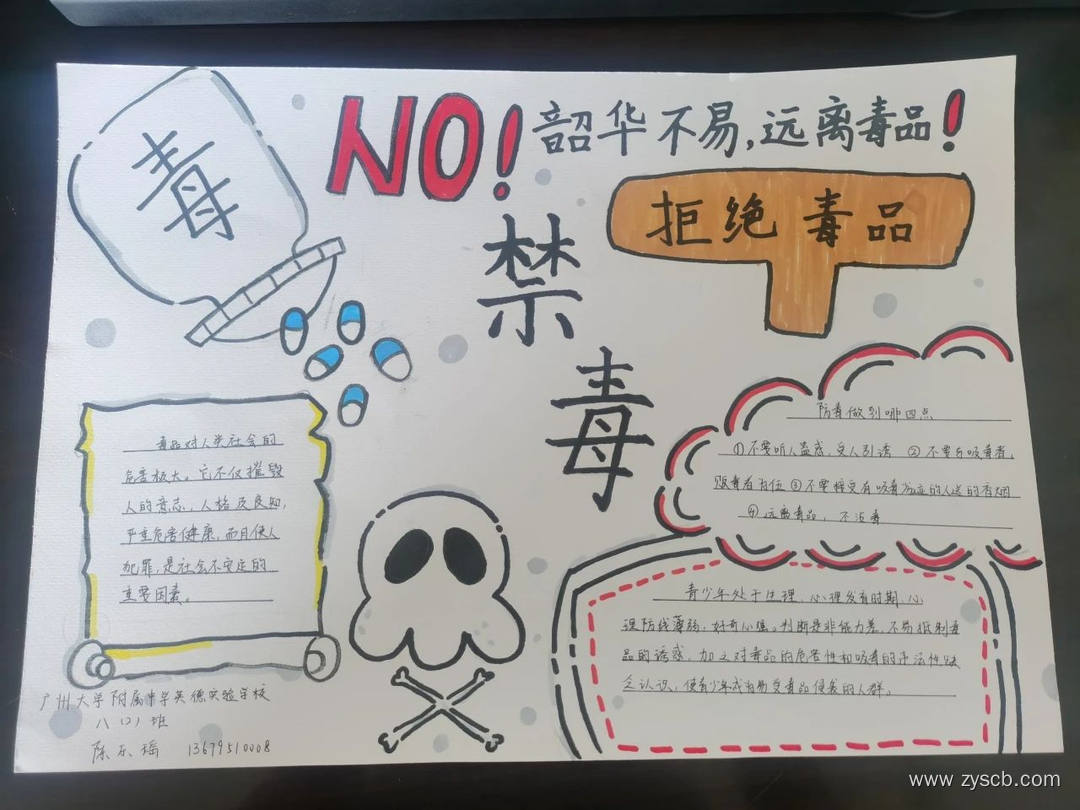 毒
NO!
韶华不易,远离毒品!
拒绝毒品
禁
毒
毒品对人类社会的
危害极大。它不仅摧毁
人的意志,人格及良知,
严重危害健康,而且使人
犯罪,是社会不安定的
主要因素。
防毒做到哪四点
①不要听人蛊惑,受人引诱 ②不要与吸毒者,
贩毒者为伍③不要接受有吸毒的人送的香烟
④远离毒品,不沾毒
青少年处于生理、心理发育时期,心
理防线薄弱,好奇心强,判断是非能力差,不易抵制毒
品的诱惑,加之对毒品的危害性和吸毒的违法性缺
乏认识,使青少年成为易受毒品侵袭的人群。
广州大学附属中学英德实验学校
八(2)班
陈乐瑶 13679510008
www.zyscb.com